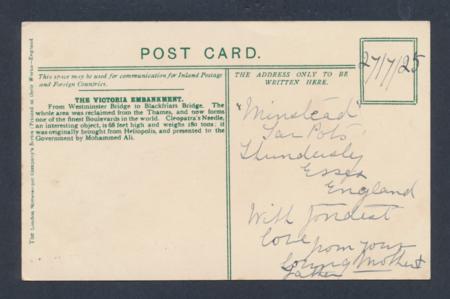 POST CARD.
27/7/25
This space may be used for communication for Inland Postage
and Foreign Countries.
THE ADDRESS ONLY TO BE
WRITTEN HERE.
THE VICTORIA EMBANKMENT.
From Westminster Bridge to Blackfriars Bridge. The
whole area was reclaimed from the Thames, and now forms
one of the finest Boulevards in the world. Cleopatra's Needle,
an interesting object, is 68 feet high and weighs 180 tons; it
was originally brought from Heliopolis, and presented to the
Government by Mohammed Ali.
"Minstead"
Tar Pots
Thundersley
Essex
England
With fondest
love from your
loving Mother &
Father
The London Stereoscopic Company's Series (Printed at their Works—England